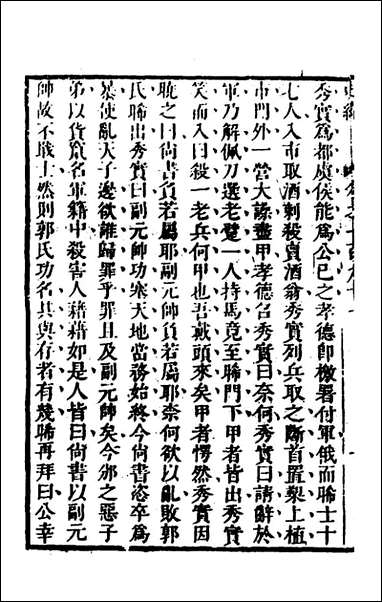 秀實爲都虞侯能爲公已之孝德卽檄署付軍俄而晞士十
七人入市取酒刺殺賣酒翁秀實列兵取之斷首置槊上植
市門外一營大譟盡甲孝德召秀實曰奈何秀實曰請辭於
軍乃解佩刀選老躄一人持馬竟至晞門下甲者皆出秀實
笑而入曰殺一老兵何甲也吾戴頭來矣甲者愕然秀實因
曉之曰尙書負若屬耶副元帥負若屬耶奈何欲以亂敗郭
氏晞出秀實曰副元帥功塞天地當務始終今尙書恣卒爲
暴使亂天子邊欲誰歸罪乎罪且及副元帥矣今邠之惡子
弟以貨竄名軍籍中殺害人藉藉如是人皆曰尙書以副元
帥故不戢士然則郭氏功名其與存者有幾晞再拜曰公幸